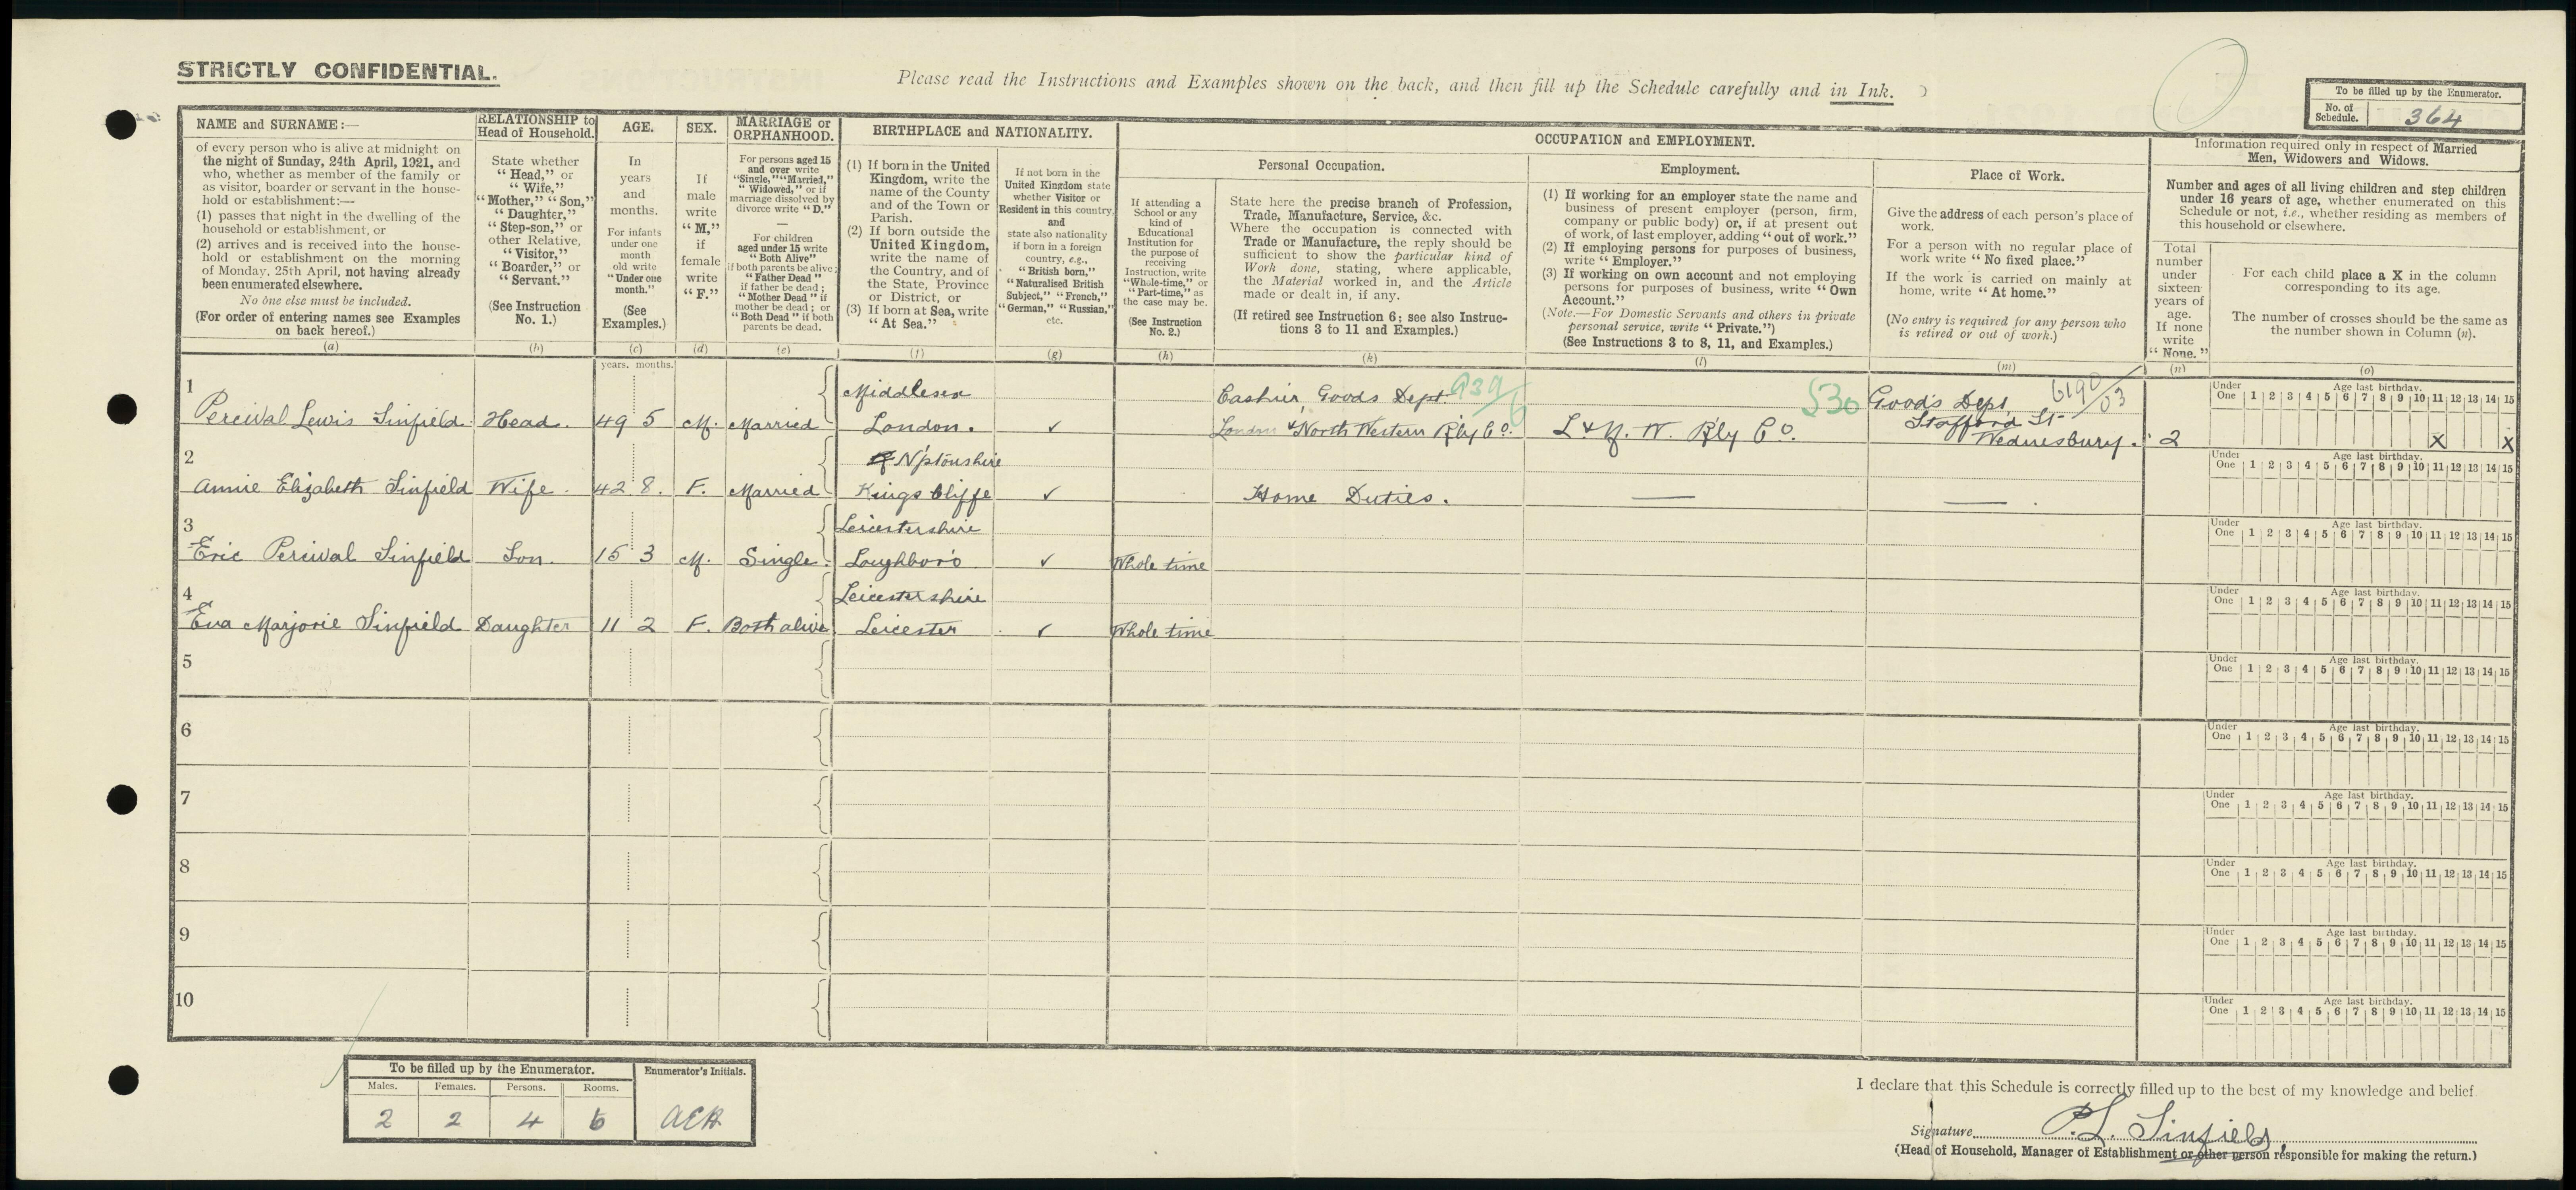 STRICTLY CONFIDENTIAL.
Please read the Instructions and Examples shown on the back, and then fill up the Schedule carefully and in Ink.
To be filled up by the Enumerator.
No. of Schedule. 364
NAME and SURNAME:—
of every person who is alive at midnight on
the night of Sunday, 24th April, 1921, and
who, whether as member of the family or
as visitor, boarder or servant in the house-
hold or establishment:—
(1) passes that night in the dwelling of the
household or establishment, or
(2) arrives and is received into the house-
hold or establishment on the morning
of Monday, 25th April, not having already
been enumerated elsewhere.
No one else must be included.
(For order of entering names see Examples
on back hereof.)
(a)
RELATIONSHIP to
Head of Household.
State whether
"Head," or
"Wife,"
"Mother," "Son,"
"Daughter,"
"Step-son," or
other Relative,
"Visitor,"
"Boarder," or
"Servant."
(See Instruction
No. 1.)
(b)
AGE.
In
years
and
months.
For infants
under one
month
old write
"Under one
month."
(See
Examples.)
(c)
SEX.
If
male
write
"M,"
if
female
write
"F."
(d)
MARRIAGE or
ORPHANHOOD.
For persons aged 15
and over write
"Single," "Married,"
"Widowed," or if
marriage dissolved by
divorce write "D."
—
For children
aged under 15 write
"Both Alive"
if both parents be alive;
"Father Dead"
if father be dead;
"Mother Dead" if
mother be dead; or
"Both Dead" if both
parents be dead.
(e)
BIRTHPLACE and NATIONALITY.
(1) If born in the United
Kingdom, write the
name of the County
and of the Town or
Parish.
(2) If born outside the
United Kingdom,
write the name of
the Country, and of
the State, Province
or District, or
(3) If born at Sea, write
"At Sea."
(f)
If not born in the
United Kingdom state
whether Visitor or
Resident in this country,
and
state also nationality
if born in a foreign
country, e.g.,
"British born,"
"Naturalised British
Subject," "French,"
"German," "Russian,"
etc.
(g)
OCCUPATION and EMPLOYMENT.
Personal Occupation.
If attending a
School or any
kind of
Educational
Institution for
the purpose of
receiving
Instruction, write
"Whole-time," or
"Part-time," as
the case may be.
(See Instruction
No. 2.)
(h)
State here the precise branch of Profession,
Trade, Manufacture, Service, &c.
Where the occupation is connected with
Trade or Manufacture, the reply should be
sufficient to show the particular kind of
Work done, stating, where applicable,
the Material worked in, and the Article
made or dealt in, if any.
(If retired see Instruction 6; see also Instruc-
tions 3 to 11 and Examples.)
(k)
Employment.
(1) If working for an employer state the name and
business of present employer (person, firm,
company or public body) or, if at present out
of work, of last employer, adding "out of work."
(2) If employing persons for purposes of business,
write "Employer."
(3) If working on own account and not employing
persons for purposes of business, write "Own
Account."
(Note.—For Domestic Servants and others in private
personal service, write "Private.")
(See Instructions 3 to 8, 11, and Examples.)
(l)
Place of Work.
Give the address of each person's place of
work.
For a person with no regular place of
work write "No fixed place."
If the work is carried on mainly at
home, write "At home."
(No entry is required for any person who
is retired or out of work.)
(m)
Information required only in respect of Married
Men, Widowers and Widows.
Number and ages of all living children and step children
under 16 years of age, whether enumerated on this
Schedule or not, i.e., whether residing as members of
this household or elsewhere.
Total
number
under
sixteen
years of
age.
If none
write
"None."
(n)
For each child place a X in the column
corresponding to its age.
The number of crosses should be the same as
the number shown in Column (n).
(o)
years. months.
1
Middlesex
Cashier, Goods Dept. 939/6
530
Goods Dept 6190/03
Percival Lewis Sinfield. Head. 49 5 M. Married London. ✓ London & North Western Rly Co. L & N. W. Rly Co. Stafford St
Wednesbury. 2
Under One 1 2 3 4 5 6 7 8 9 10 11 12 13 14 15
Age last birthday.
X X
2
N'ptonshire
Annie Elizabeth Sinfield Wife. 42 8. F. Married Kings Cliffe ✓ Home Duties. — —
Under One 1 2 3 4 5 6 7 8 9 10 11 12 13 14 15
Age last birthday.
3
Leicestershire
Eric Percival Sinfield Son. 15 3 M. Single. Loughboro' ✓ Whole time
Under One 1 2 3 4 5 6 7 8 9 10 11 12 13 14 15
Age last birthday.
4
Leicestershire
Eva Marjorie Sinfield Daughter 11 2 F. Both alive Leicester ✓ Whole time
Under One 1 2 3 4 5 6 7 8 9 10 11 12 13 14 15
Age last birthday.
5
Under One 1 2 3 4 5 6 7 8 9 10 11 12 13 14 15
Age last birthday.
6
Under One 1 2 3 4 5 6 7 8 9 10 11 12 13 14 15
Age last birthday.
7
Under One 1 2 3 4 5 6 7 8 9 10 11 12 13 14 15
Age last birthday.
8
Under One 1 2 3 4 5 6 7 8 9 10 11 12 13 14 15
Age last birthday.
9
Under One 1 2 3 4 5 6 7 8 9 10 11 12 13 14 15
Age last birthday.
10
Under One 1 2 3 4 5 6 7 8 9 10 11 12 13 14 15
Age last birthday.
To be filled up by the Enumerator.
Enumerator's Initials.
Males. Females. Persons. Rooms.
2 2 4 6 AEH
I declare that this Schedule is correctly filled up to the best of my knowledge and belief.
Signature P. L. Sinfield,
(Head of Household, Manager of Establishment or other person responsible for making the return.)